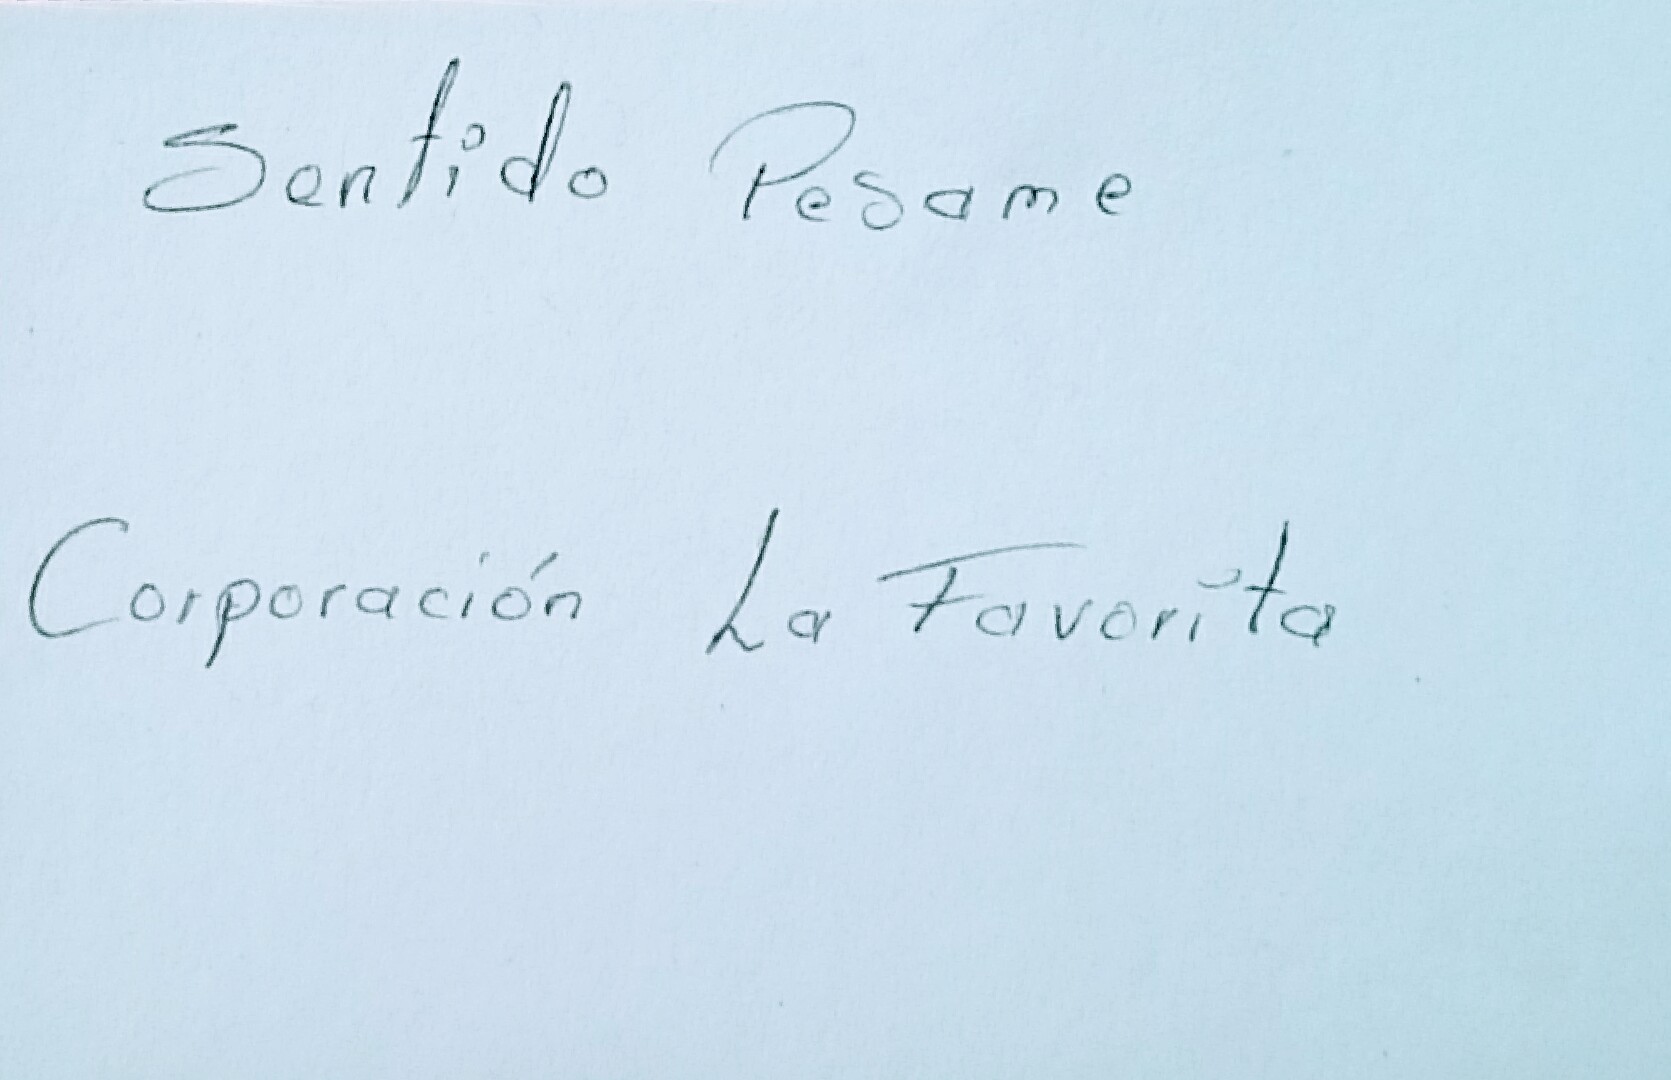 Sentido Pesame
Corporación La Favorita